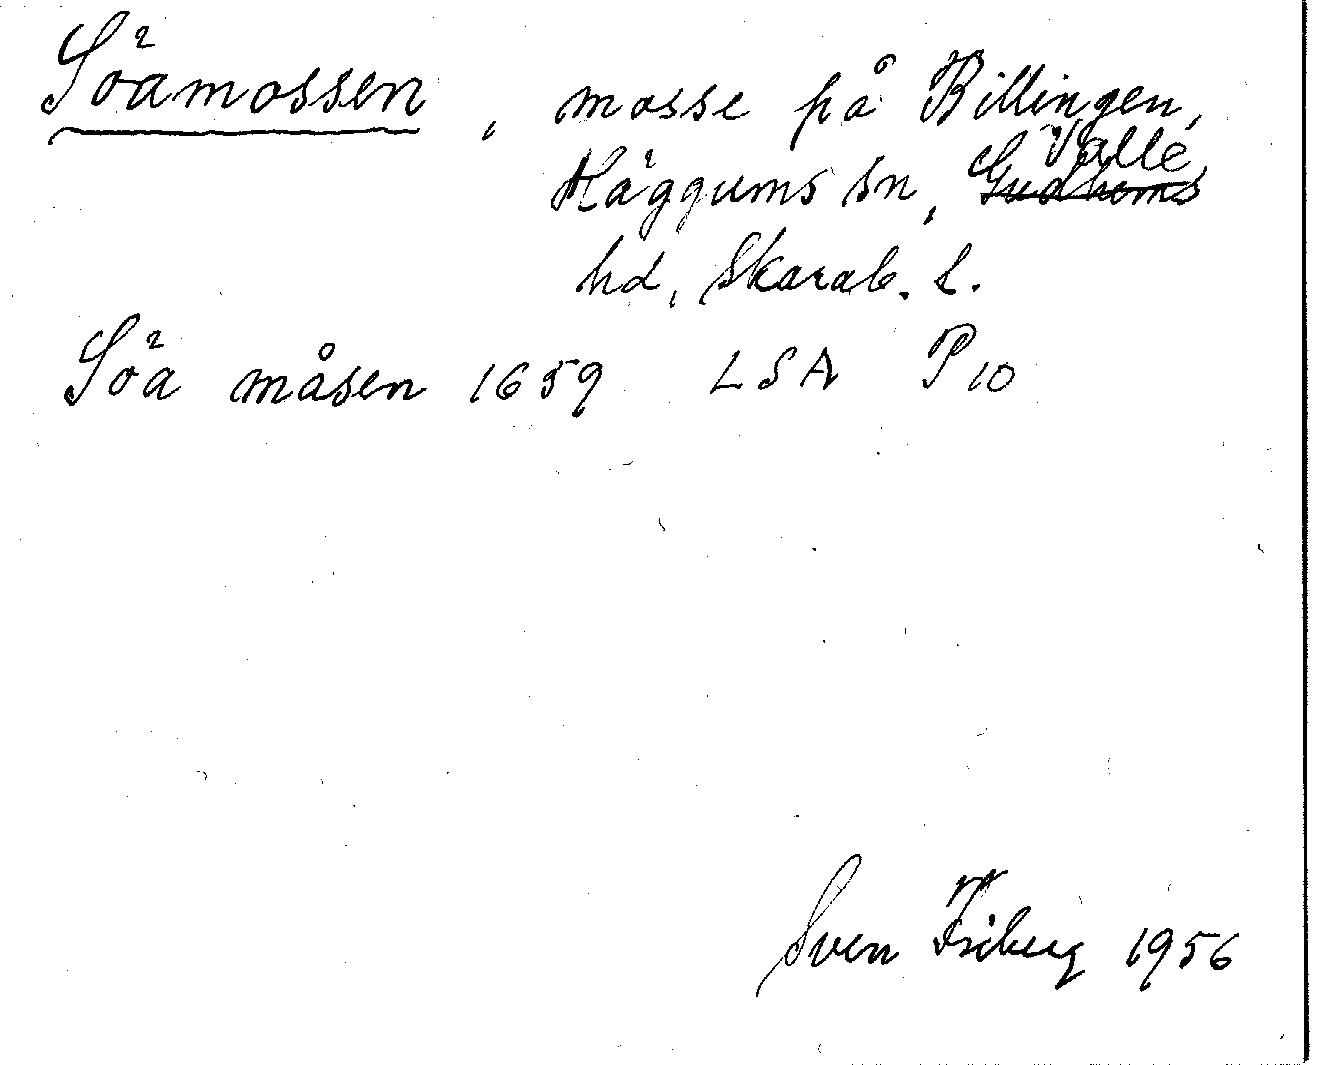 Söamossen, mosse på Billingen,
Häggums sn, Valle ~~Gudhems~~
hd, Skarab. l.
Söa måsen 1659 LSA P 10
Sven Friberg 1956